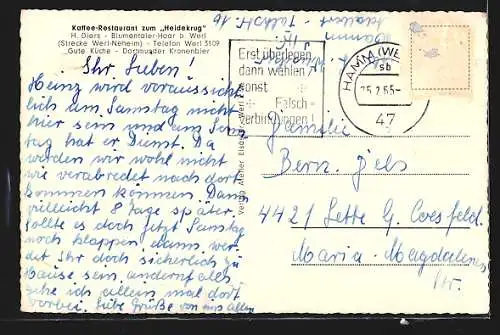 Kaffee-Restaurant zum „Heidekrug"
H. Diers - Blumentaler-Haar b. Werl
(Strecke Werl-Neheim) - Telefon Werl 3109
„Gute Küche - Dortmunder Kronenbier
Ihr Lieben!
Heinz wird voraussicht
lich am Samstag nicht
hier sein und am Sonn
tag hat er Dienst. Da
werden wir wohl nicht
wie verabredet nach dort
kommen können. Dann
vielleicht 8 Tage später.
Sollte es doch jetzt Samstag
noch klappen, dann wer-
det Ihr doch sicherlich zu
Hause sein, andernfalls
gehe ich allein mal dort
vorbei. Liebe Grüße von uns Allen
Hamm
Erst überlegen,
dann wählen
sonst
Falsch-
verbindungen!
HAMM (WE
sb
15.2.65-
47
Familie
Bern. Jels
4421 Lette G. Coesfeld.
Maria-Magdalenen
Str.